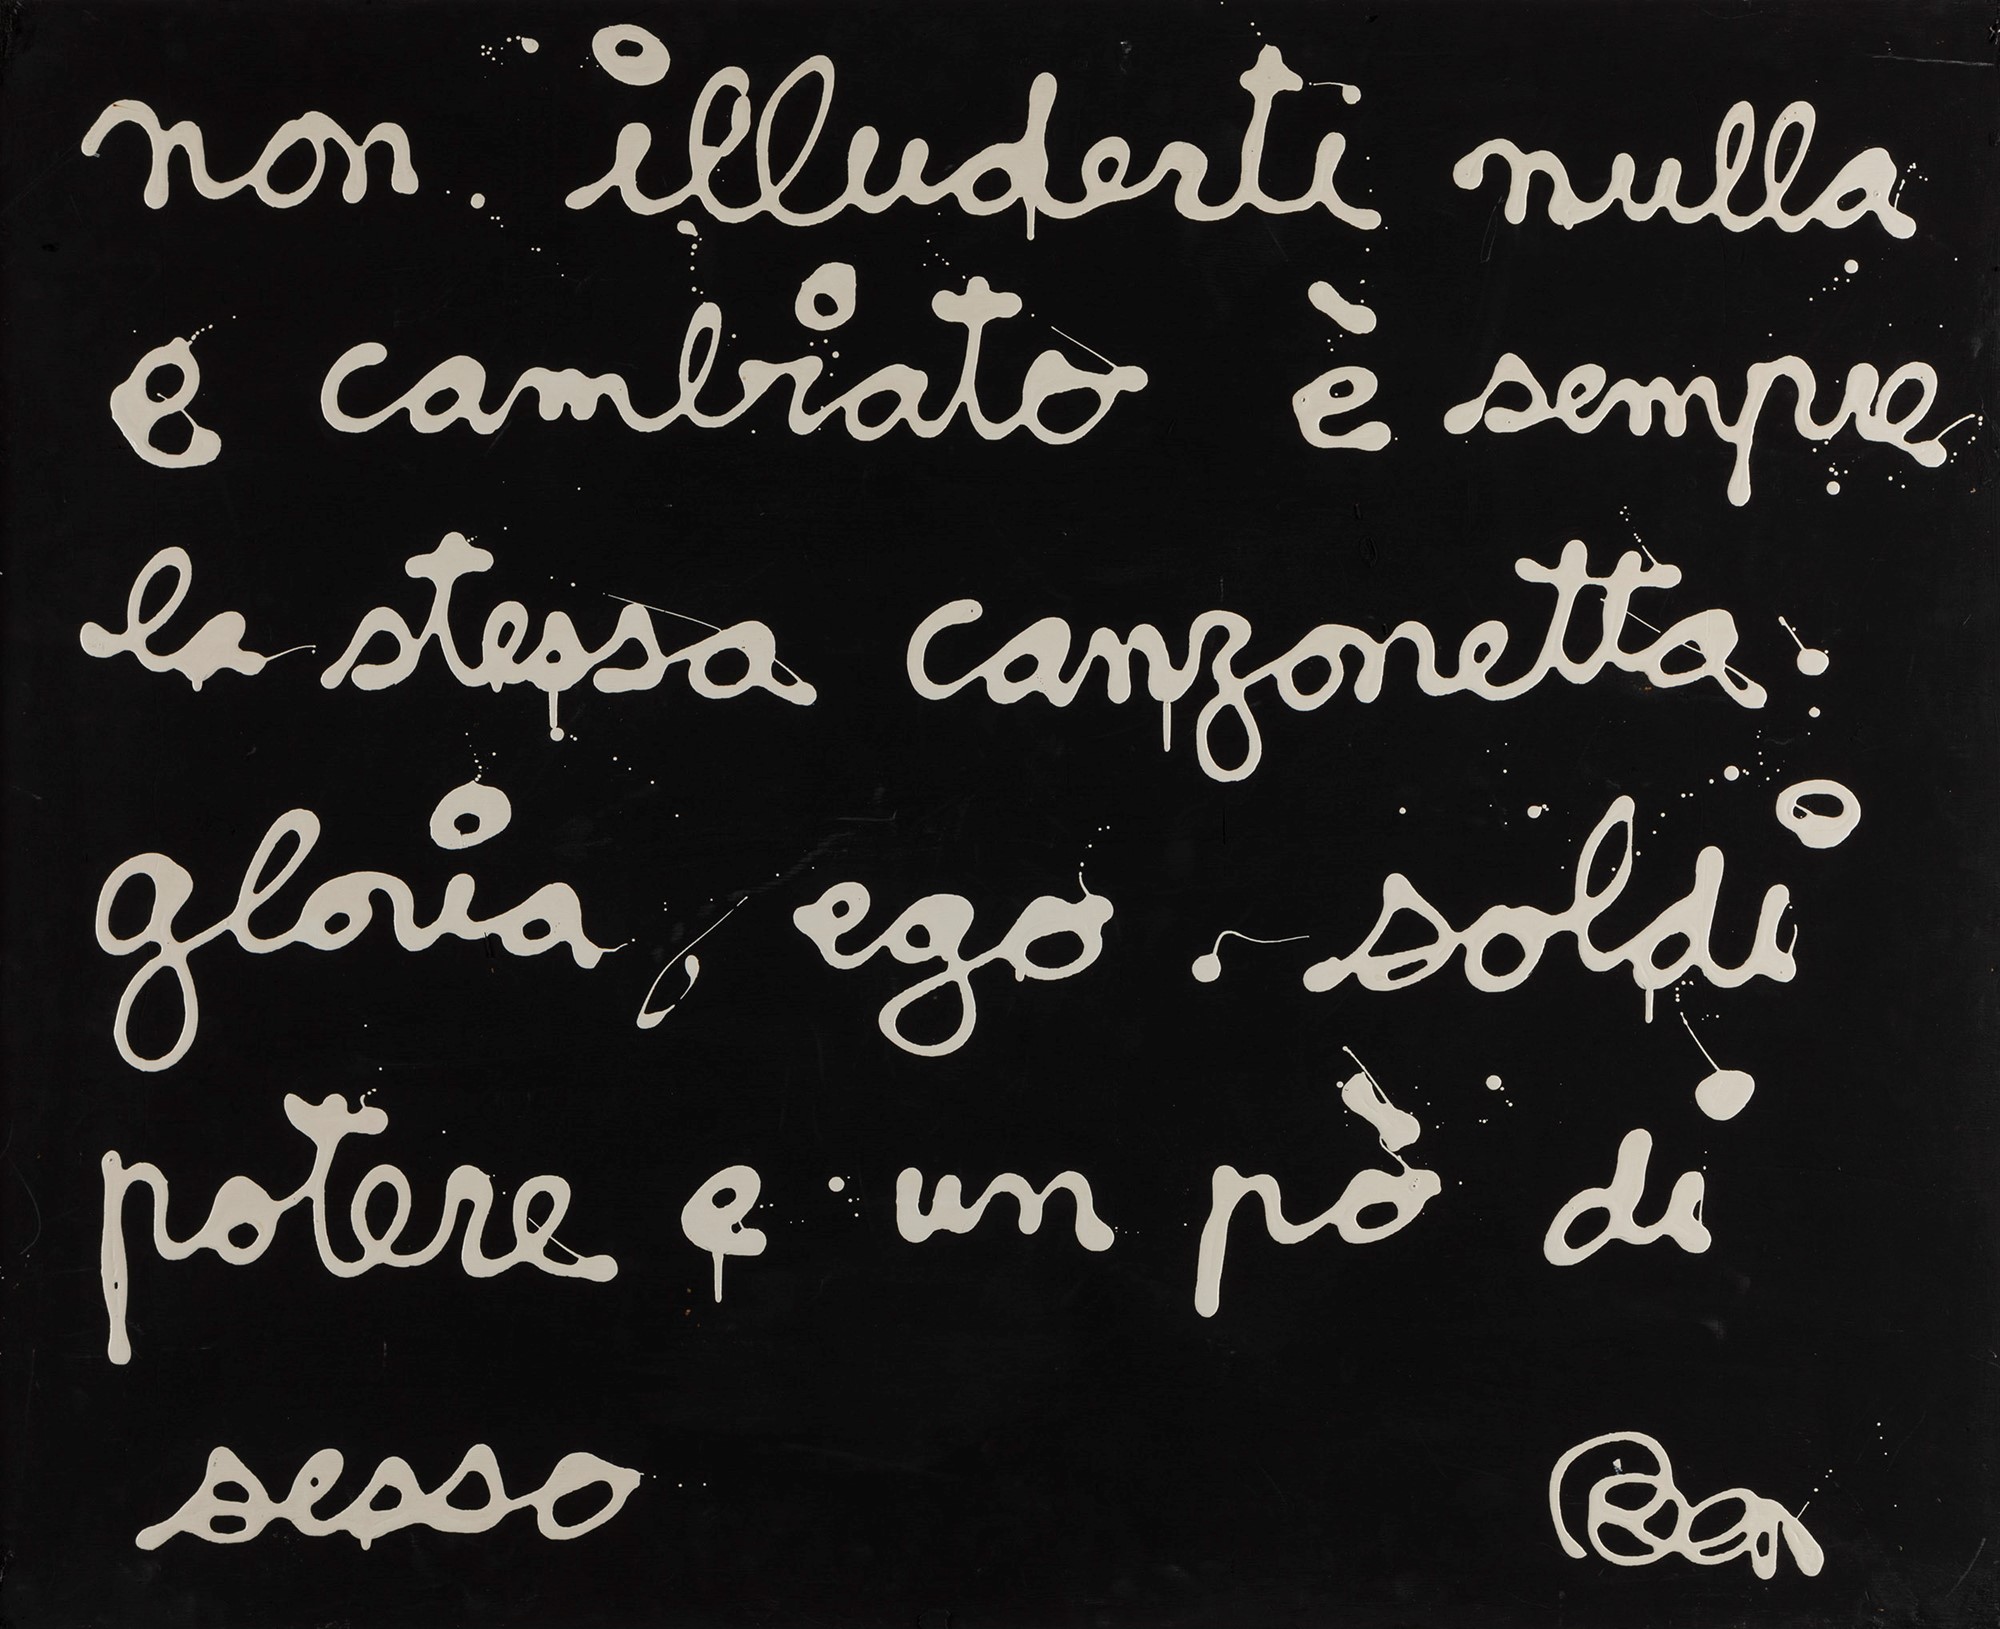 non illuderti nulla
e cambiato è sempre
la stessa canzonetta.
gloria, ego. soldi
potere e un pò di
sesso Ben